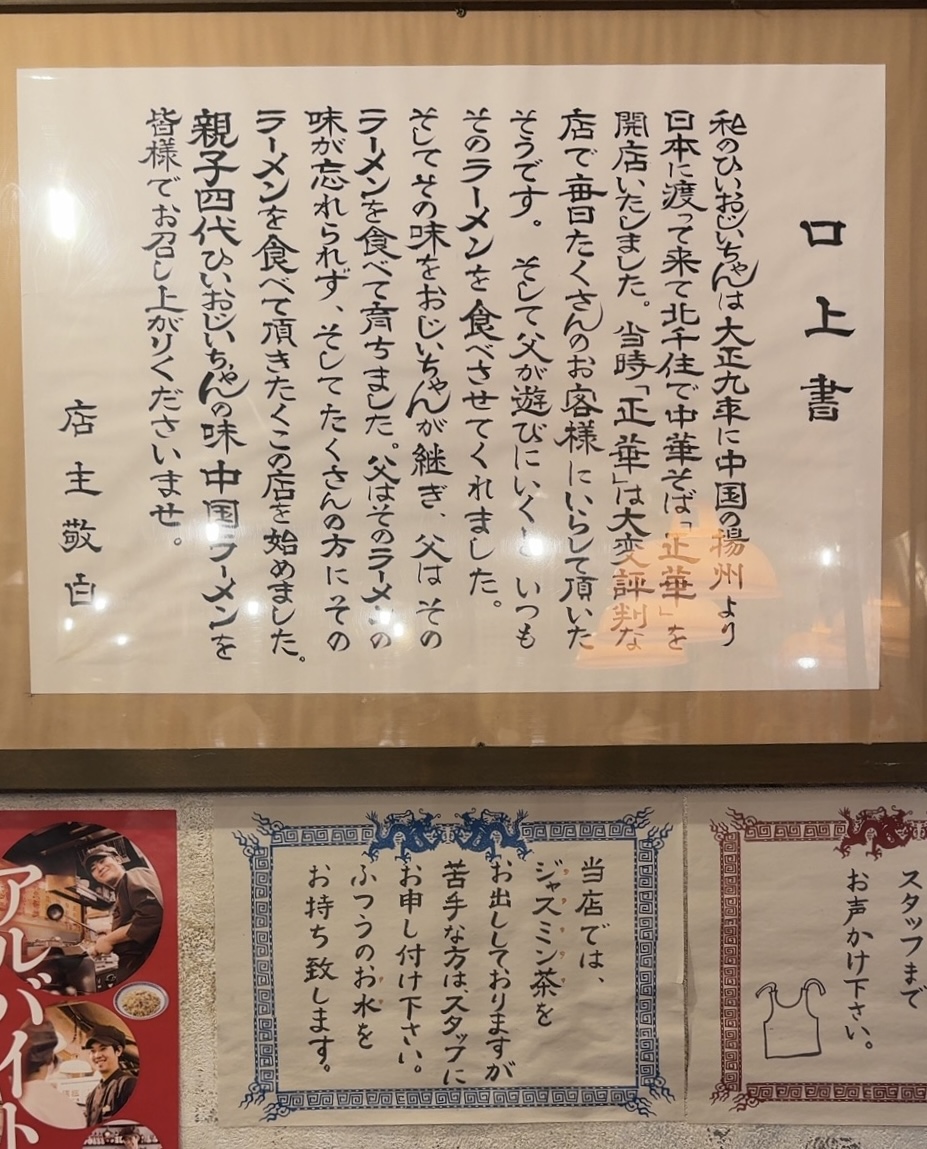 口上書
私のひいおじいちゃんは大正九年に中国の揚州より
日本に渡って来て北千住で中華そば「正華」を
開店いたしました。当時「正華」は大変評判な
店で毎日たくさんのお客様にいらして頂いた
そうです。そして父が遊びにいくと いつも
そのラーメンを食べさせてくれました。
そしてその味をおじいちゃんが継ぎ、父は その
ラーメンを食べて育ちました。父はそのラーメンの
味が忘れられず、そしてたくさんの方にその
ラーメンを食べて頂きたくこの店を始めました。
親子四代ひいおじいちゃんの味 中国ラーメンを
皆様でお召し上がりくださいませ。
店主敬白
アルバイト
当店では、
ジャスミン茶を
お出ししておりますが
苦手な方は、スタッフに
お申し付け下さい。
ふつうのお水を
お持ち致します。
スタッフまで
お声かけ下さい。